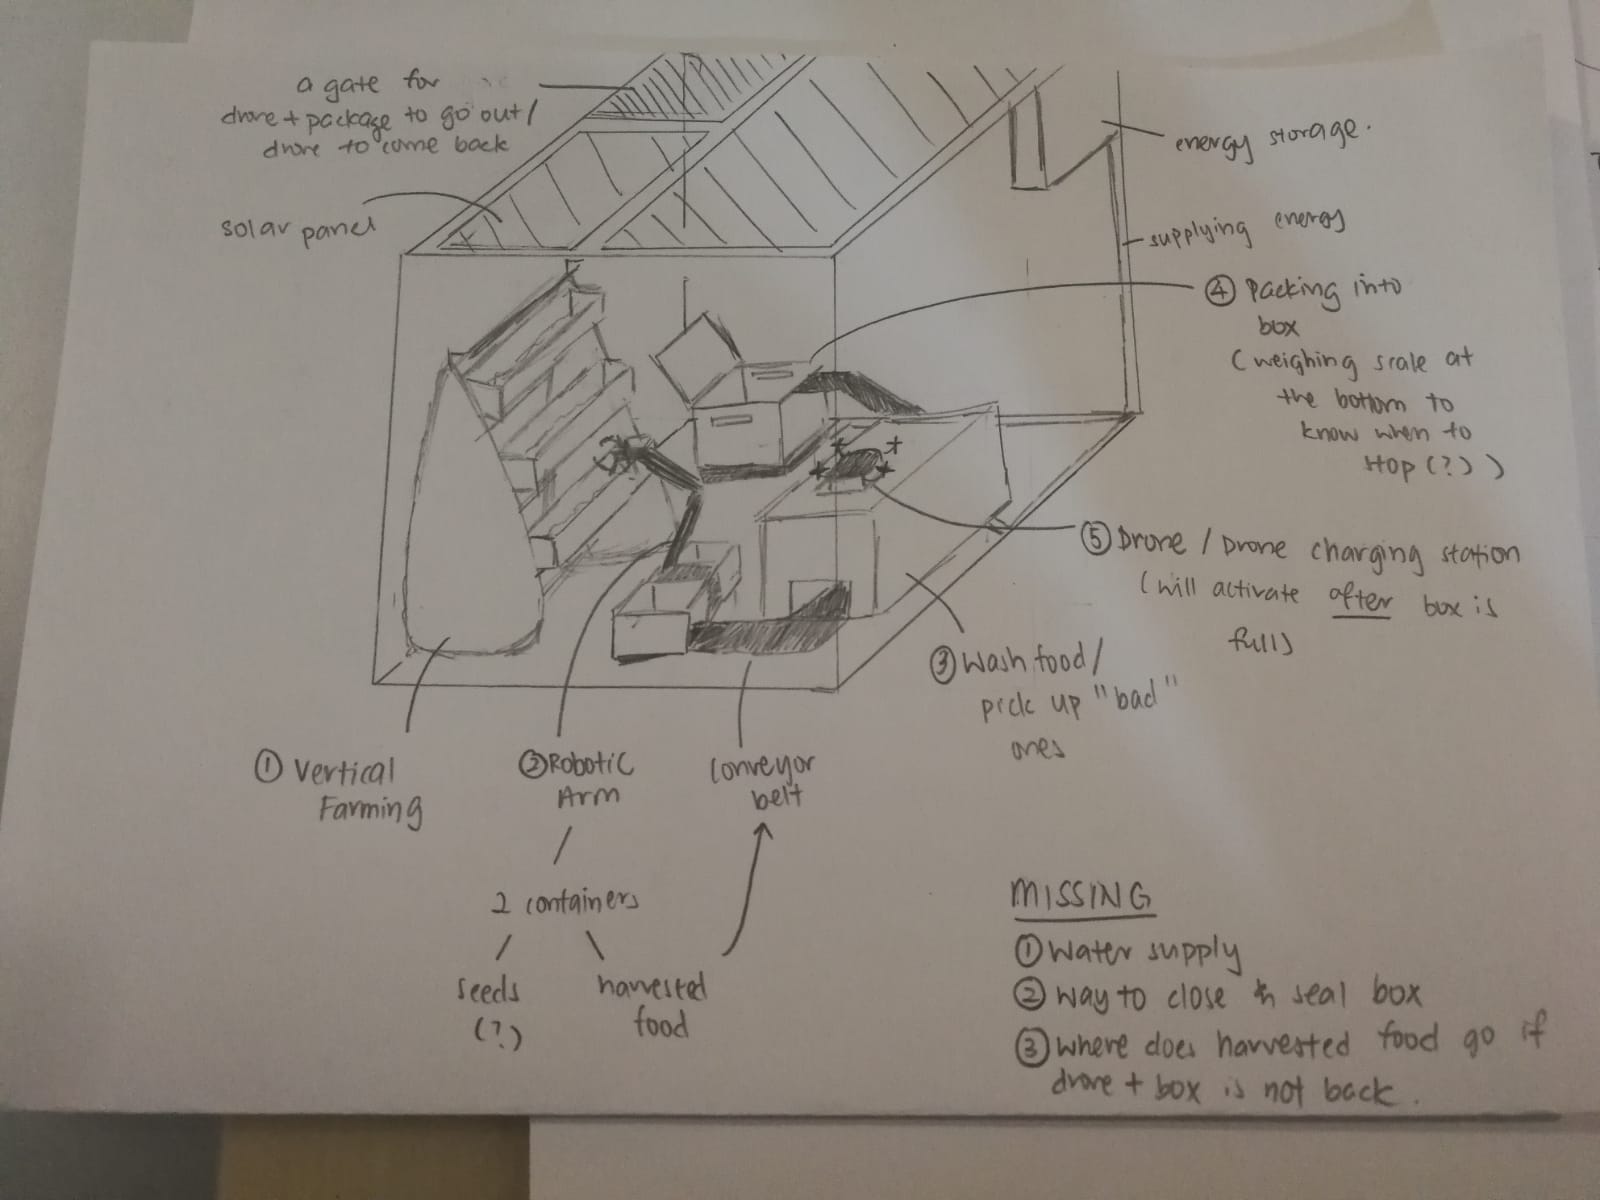 a gate for
drone + package to go out /
drone to come back
solar panel
energy storage.
supplying energy
④ Packing into
box
(weighing scale at
the bottom to
know when to
stop (?))
⑤ Drone / Drone charging station
(will activate after box is
full)
③ Wash food /
pick up "bad"
ones
① Vertical
Farming
② Robotic
Arm
conveyor
belt
2 containers
seeds
(?)
harvested
food
MISSING
① Water supply
② Way to close & seal box
③ where does harvested food go if
drone + box is not back.